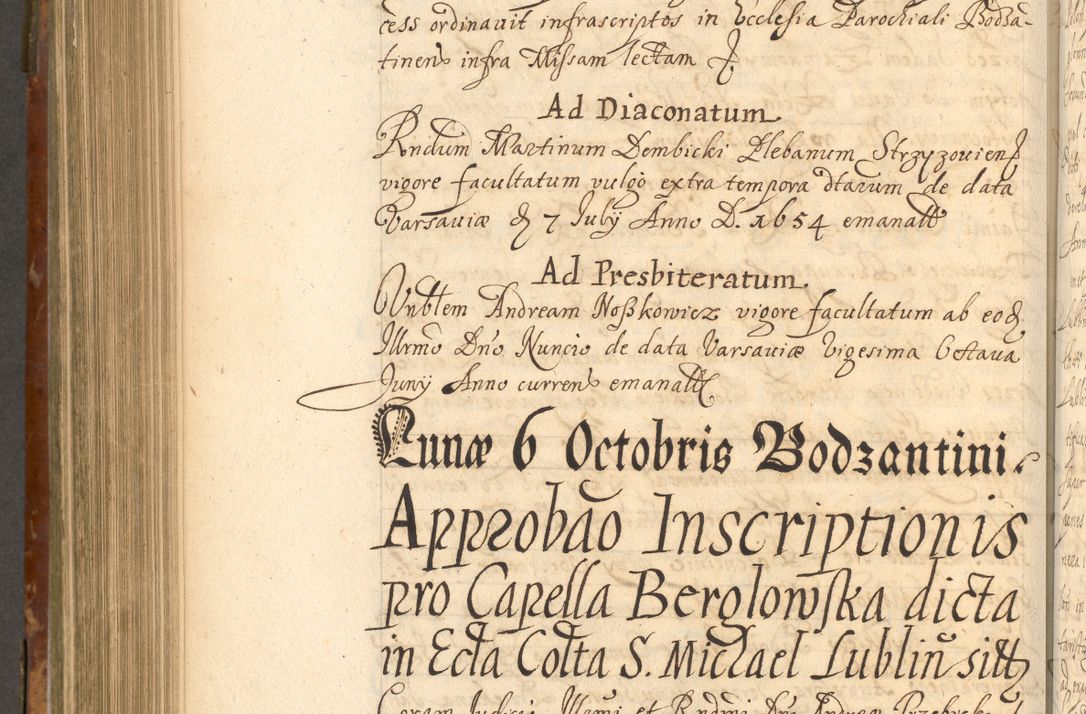 cess ordinavit infrascriptos in Ecclesia Parochiali Bodza-
tinens infra Missam lectam
Ad Diaconatum.
Rndum Martinum Dembicki Plebanum Strzyzovien
vigore facultatum vulgò extra tempora dtarum de data
Varsaviæ 7 July Anno D. 1654 emanatt
Ad Presbiteratum.
Vnblem Andream Noßkowicz vigore facultatum ab eod
Illrmo Dno Nuncio de data Varsaviæ Vigesima Octava
Juny Anno currens emanatt
Lunæ 6 Octobris Bodzantini.
Approbão Inscriptionis
pro Capella Berglowska dicta
in Ecla Colta S. Michael Lublin sitt
Coram Judicio Illrmi et Rndmi Dni Andreæ